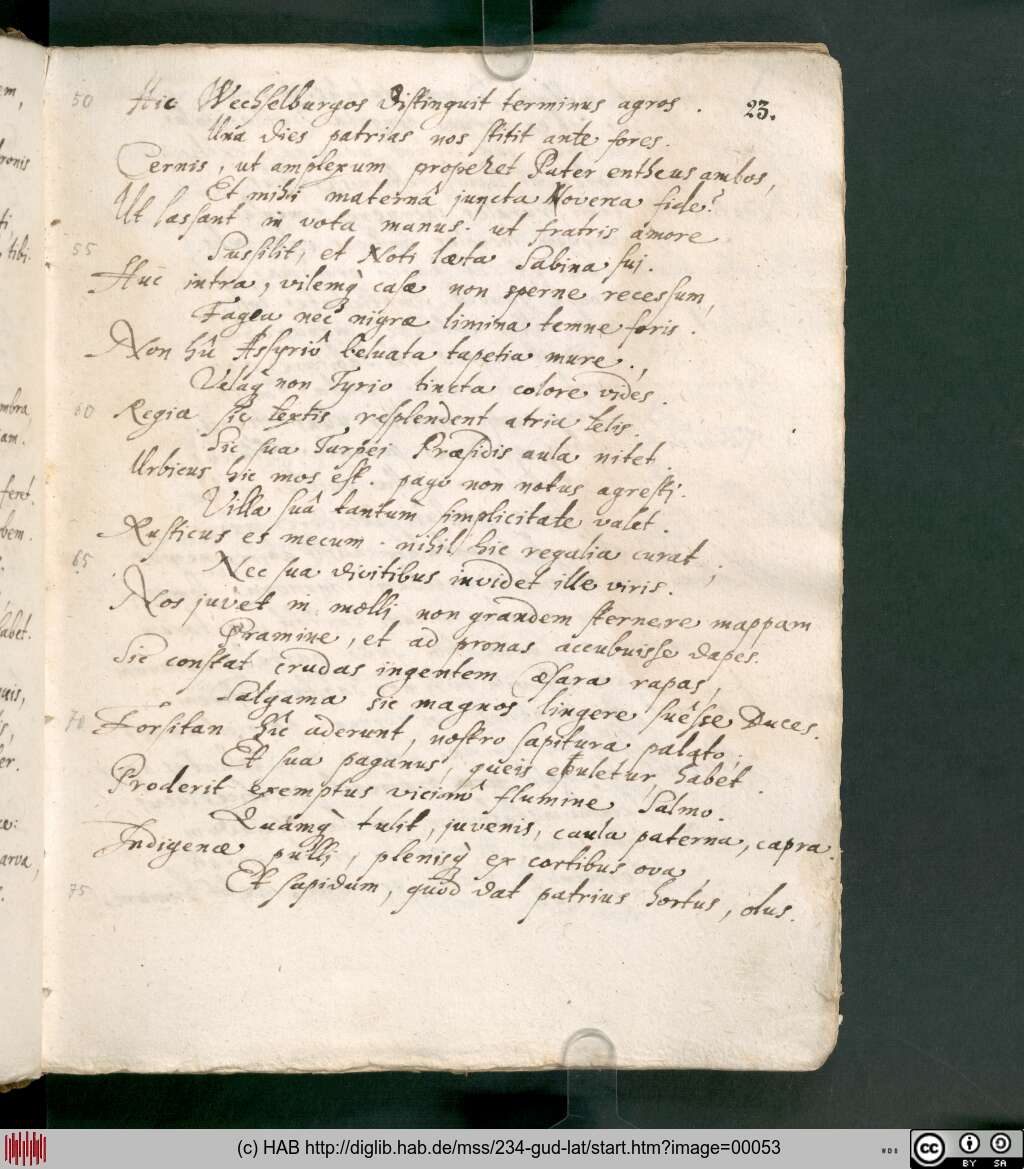 50 Hic Wechselburgos distinguit terminus agros.
23.
Una dies patrias nos stitit ante fores.
Cernis, ut amplexum properet Pater entheus ambos,
Et mihi maternâ juncta Noverca fide?
Ut lassant in vota manus. ut fratris amore
55 Sussilit, et Noti læta Sabina sui.
Huc intra, vilemq casæ non sperne recessum,
Fagea nec nigræ limina temne foris.
Non hîc Assyriô beluata tapetia mure,
Velaq non Tyrio tincta colore vides.
60 Regia sic textis resplendent atria telis.
Sic sua Turpei Præsidis aula nitet.
Urbicus hic mos est. pago non notus agresti.
Villa suâ tantum simplicitate valet.
Rusticus es mecum. nihil hic regalia curat;
65 Nec sua divitibus invidet ille viris.
Nos juvet in molli non grandem sternere mappam
Gramine, et ad pronas accubuisse dapes.
Sic constat crudas ingentem Cæsara rapas,
Salgama sic magnos lingere suêsse Duces.
70 Forsitan hîc aderunt, nostro sapitura palato,
Et sua paganus, queis epuletur, habet.
Proderit exemptus vicinô flumine Salmo.
Quamq tulit, juvenis, caula paterna, capra.
Indigenæ pulli, plenisq ex cortibus ova,
75 Et sapidum, quod dat patrius hortus, olus.
(c) HAB http://diglib.hab.de/mss/234-gud-lat/start.htm?image=00053
WDB
cc BY SA